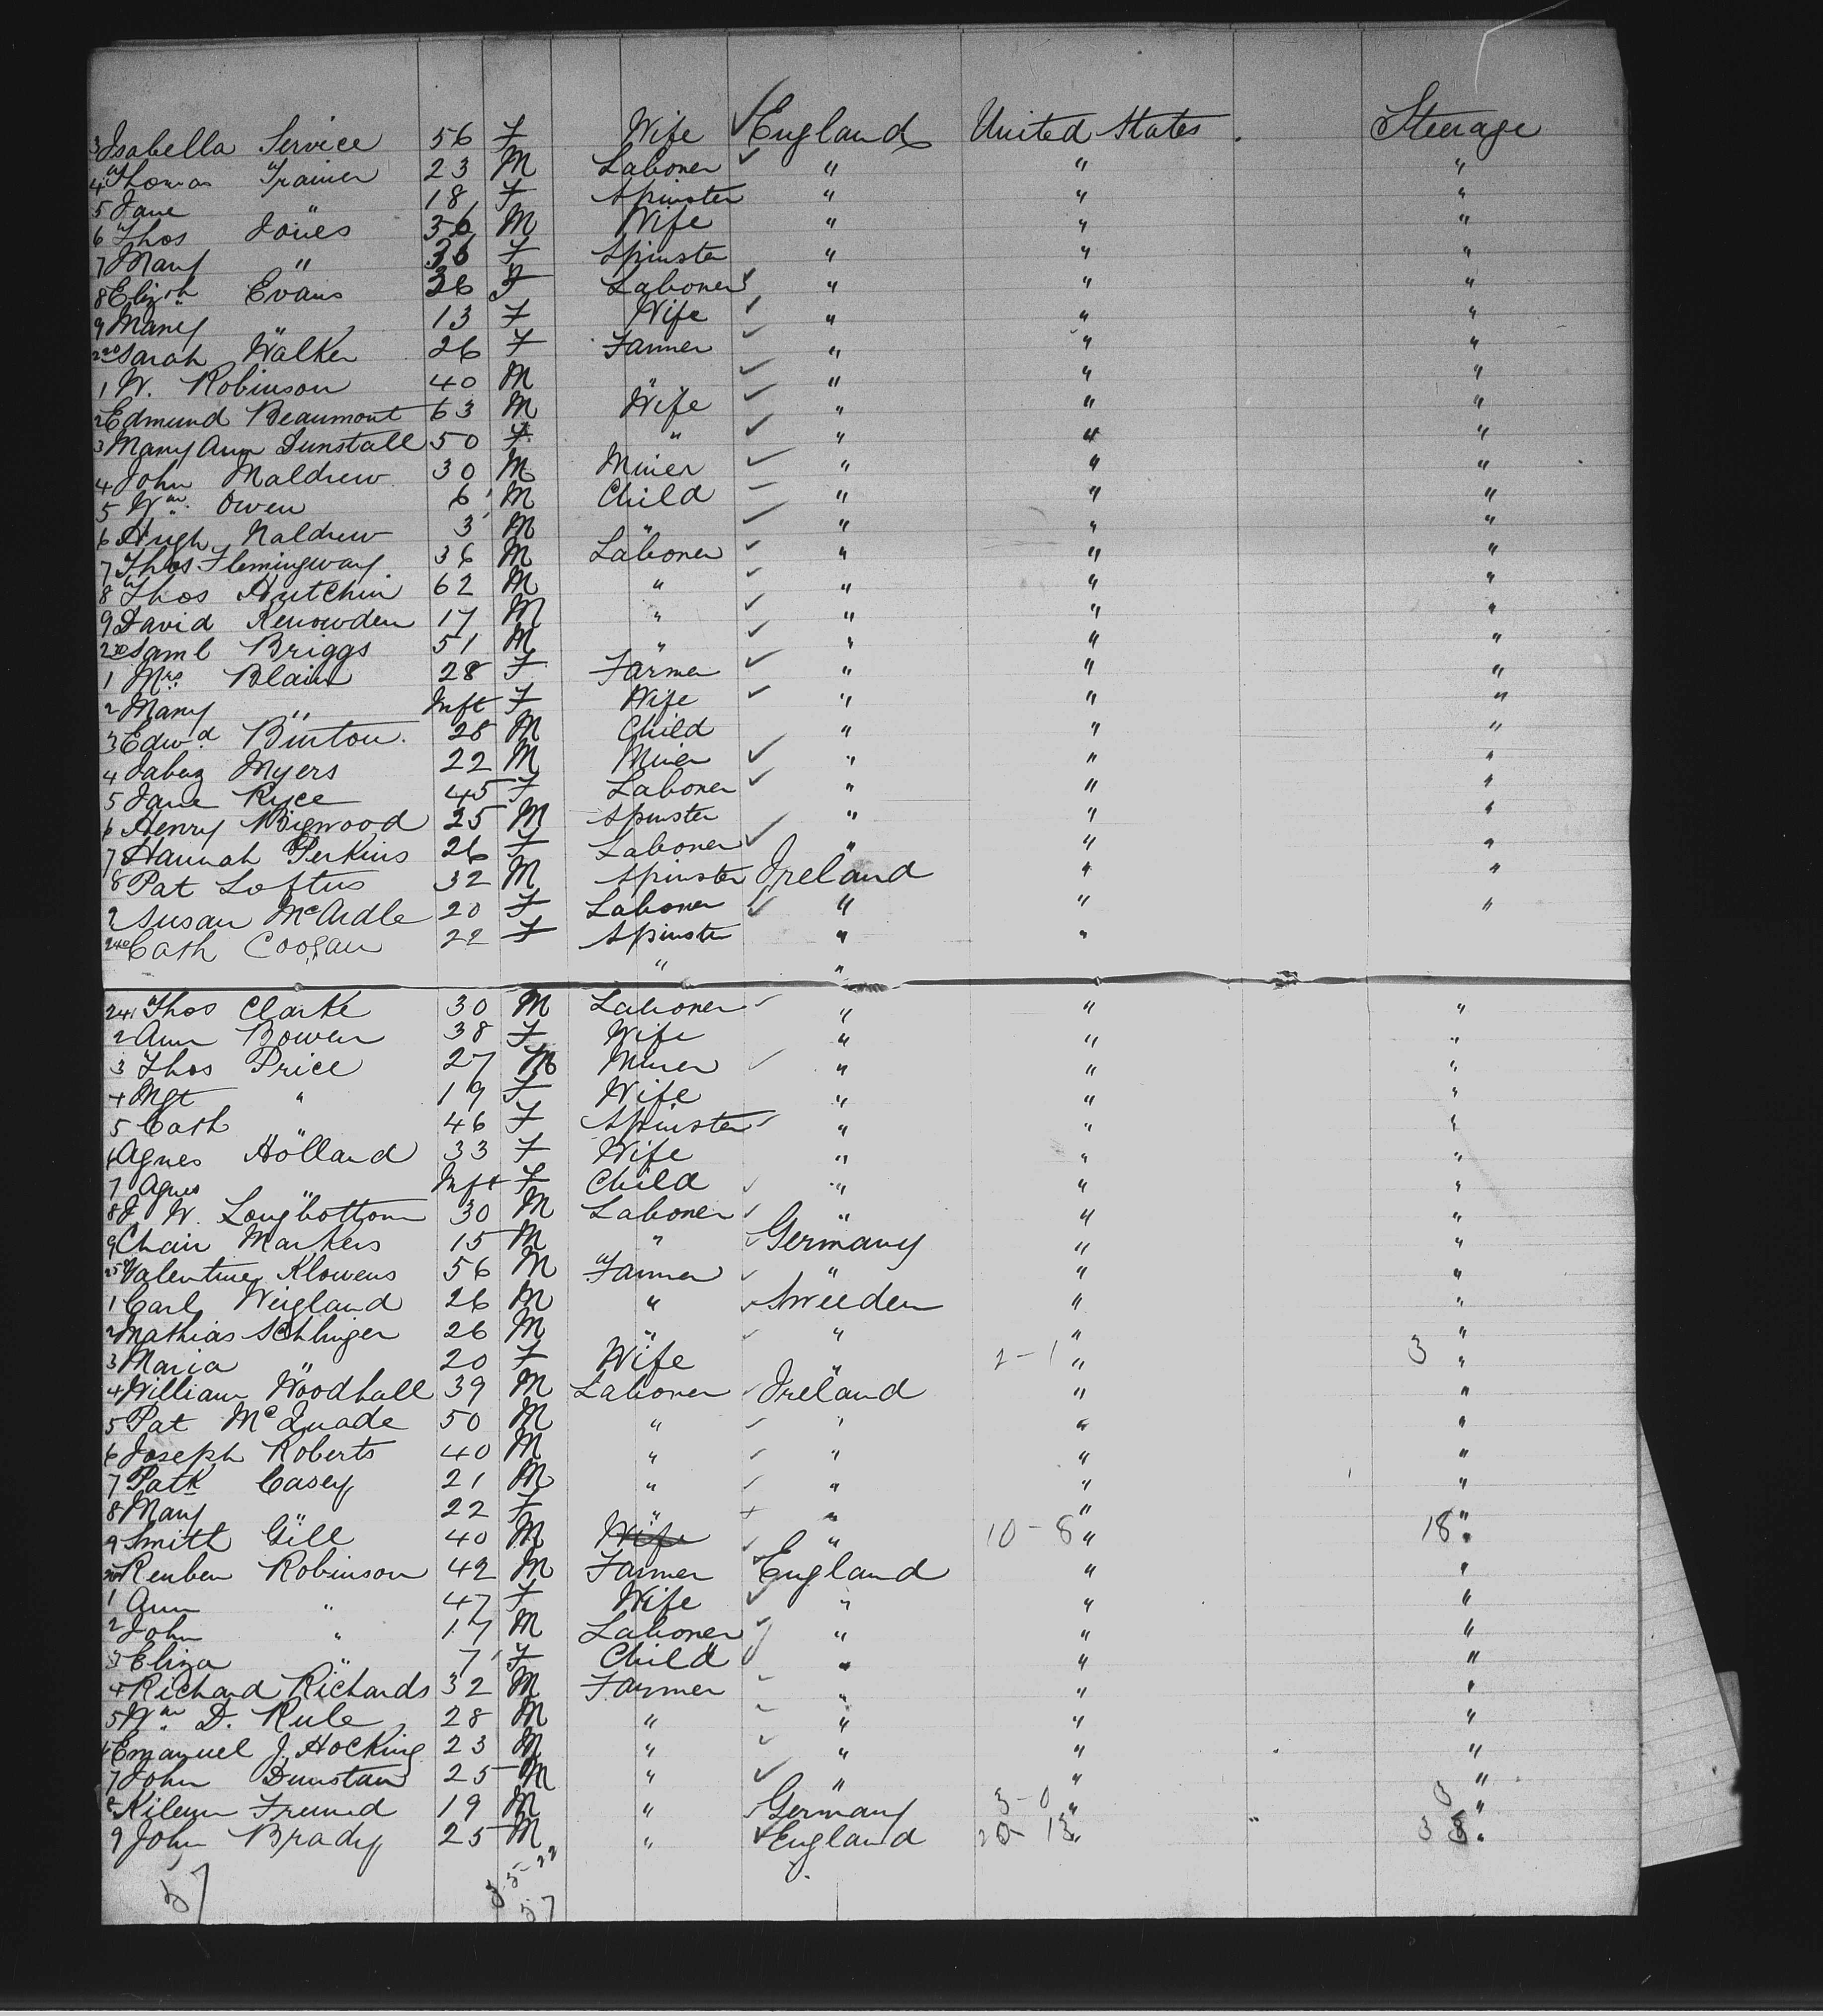 3 Isabella Service 56 F Wife England United States Steerage
4 Thomas Trainer 23 M Laborer " " "
5 Jane " 18 F Spinster " " "
6 Thos Jones 36 M Wife " " "
7 Mary " 36 F Spinster " " "
8 Elizth Evans 26 F Laborer " " "
9 Mary " 13 F Wife " " "
220 Sarah Walker 26 F Farmer " " "
1 W. Robinson 40 M " " " "
2 Edmund Beaumont 63 M Wife " " "
3 Mary Ann Dunstall 50 F " " " "
4 John Maldrew 30 M Miner " " "
5 Wm Owen 6 M Child " " "
6 Hugh Naldrew 3 M " " " "
7 Thos Flemingway 36 M Laborer " " "
8 Thos Hutchin 62 M " " " "
9 David Renowden 17 M " " " "
230 Saml Briggs 51 M " " " "
1 Mrs Blain 28 F Farmer " " "
2 Mary " Inft F Wife " " "
3 Edwd Binton 28 M Child " " "
4 Jabez Myers 22 M Miner " " "
5 Jane Ryce 45 F Laborer " " "
6 Henry Bigwood 25 M Spinster " " "
7 Hannah Perkins 26 F Laborer " " "
8 Pat Loftus 32 M Spinster Ireland " "
9 Susan McArdle 20 F Laborer " " "
240 Cath Coogan 22 F Spinster " "
" "
241 Thos Clarke 30 M Laborer " " "
2 Ann Bowen 38 F Wife " " "
3 Thos Price 27 M Miner " " "
4 Mgt " 19 F Wife " " "
5 Cath " 46 F Spinster " " "
6 Agnes Holland 33 F Wife " " "
7 Agnes " Inft F Child " " "
8 J. W. Longbottom 30 M Laborer " " "
9 Chair Markers 15 M " Germany " "
250 Valentine Klowens 56 M Farmer " " "
1 Carl Weigland 26 M " Sweeden " "
2 Mathias Schlinger 26 M " " " "
3 Maria " 20 F Wife " 2-1 " 3 "
4 William Woodhall 39 M Laborer Ireland " "
5 Pat McQuade 50 M " " " "
6 Joseph Roberts 40 M " " " "
7 Patk Casey 21 M " " " "
8 Mary " 22 F " " " "
9 Smith Gill 40 M Wife " 10-8 " 18 "
260 Reuben Robinson 42 M Farmer England " "
1 Ann " 47 F Wife " " "
2 John " 17 M Laborer " " "
3 Eliza " 7 F Child " " "
4 Richard Richards 32 M Farmer " " "
5 Wm D. Rule 28 M " " " "
6 Emanuel J. Hocking 23 M " " " "
7 John Dunstan 25 M " " " "
8 Freund 19 M " Germany 3-0 " 3 "
9 John Brady 25 M " England 20-13 " 33 "
57 35-22
57